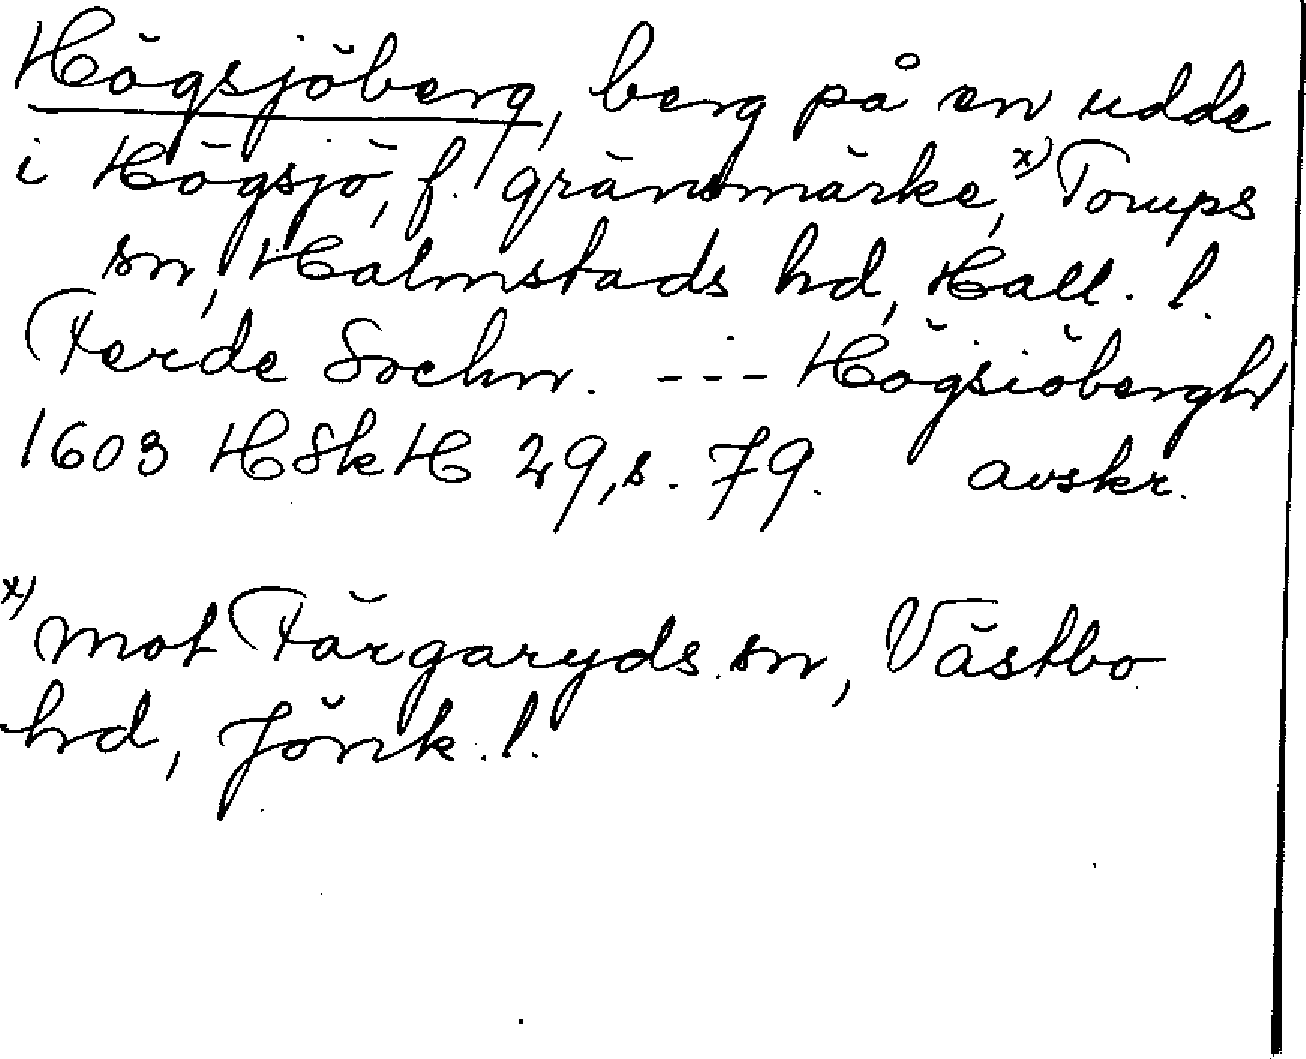 Högsjöberg, berg på en udde
i Högsjö, f. gränsmärke,x) Torups
sn, Halmstads hd, Hall. l.
Ferde Sochn. --- Högsiöbergh
1603 HSkH 29,s. 79. avskr.
x) mot Färgaryds sn, Västbo
hd, Jönk. l.